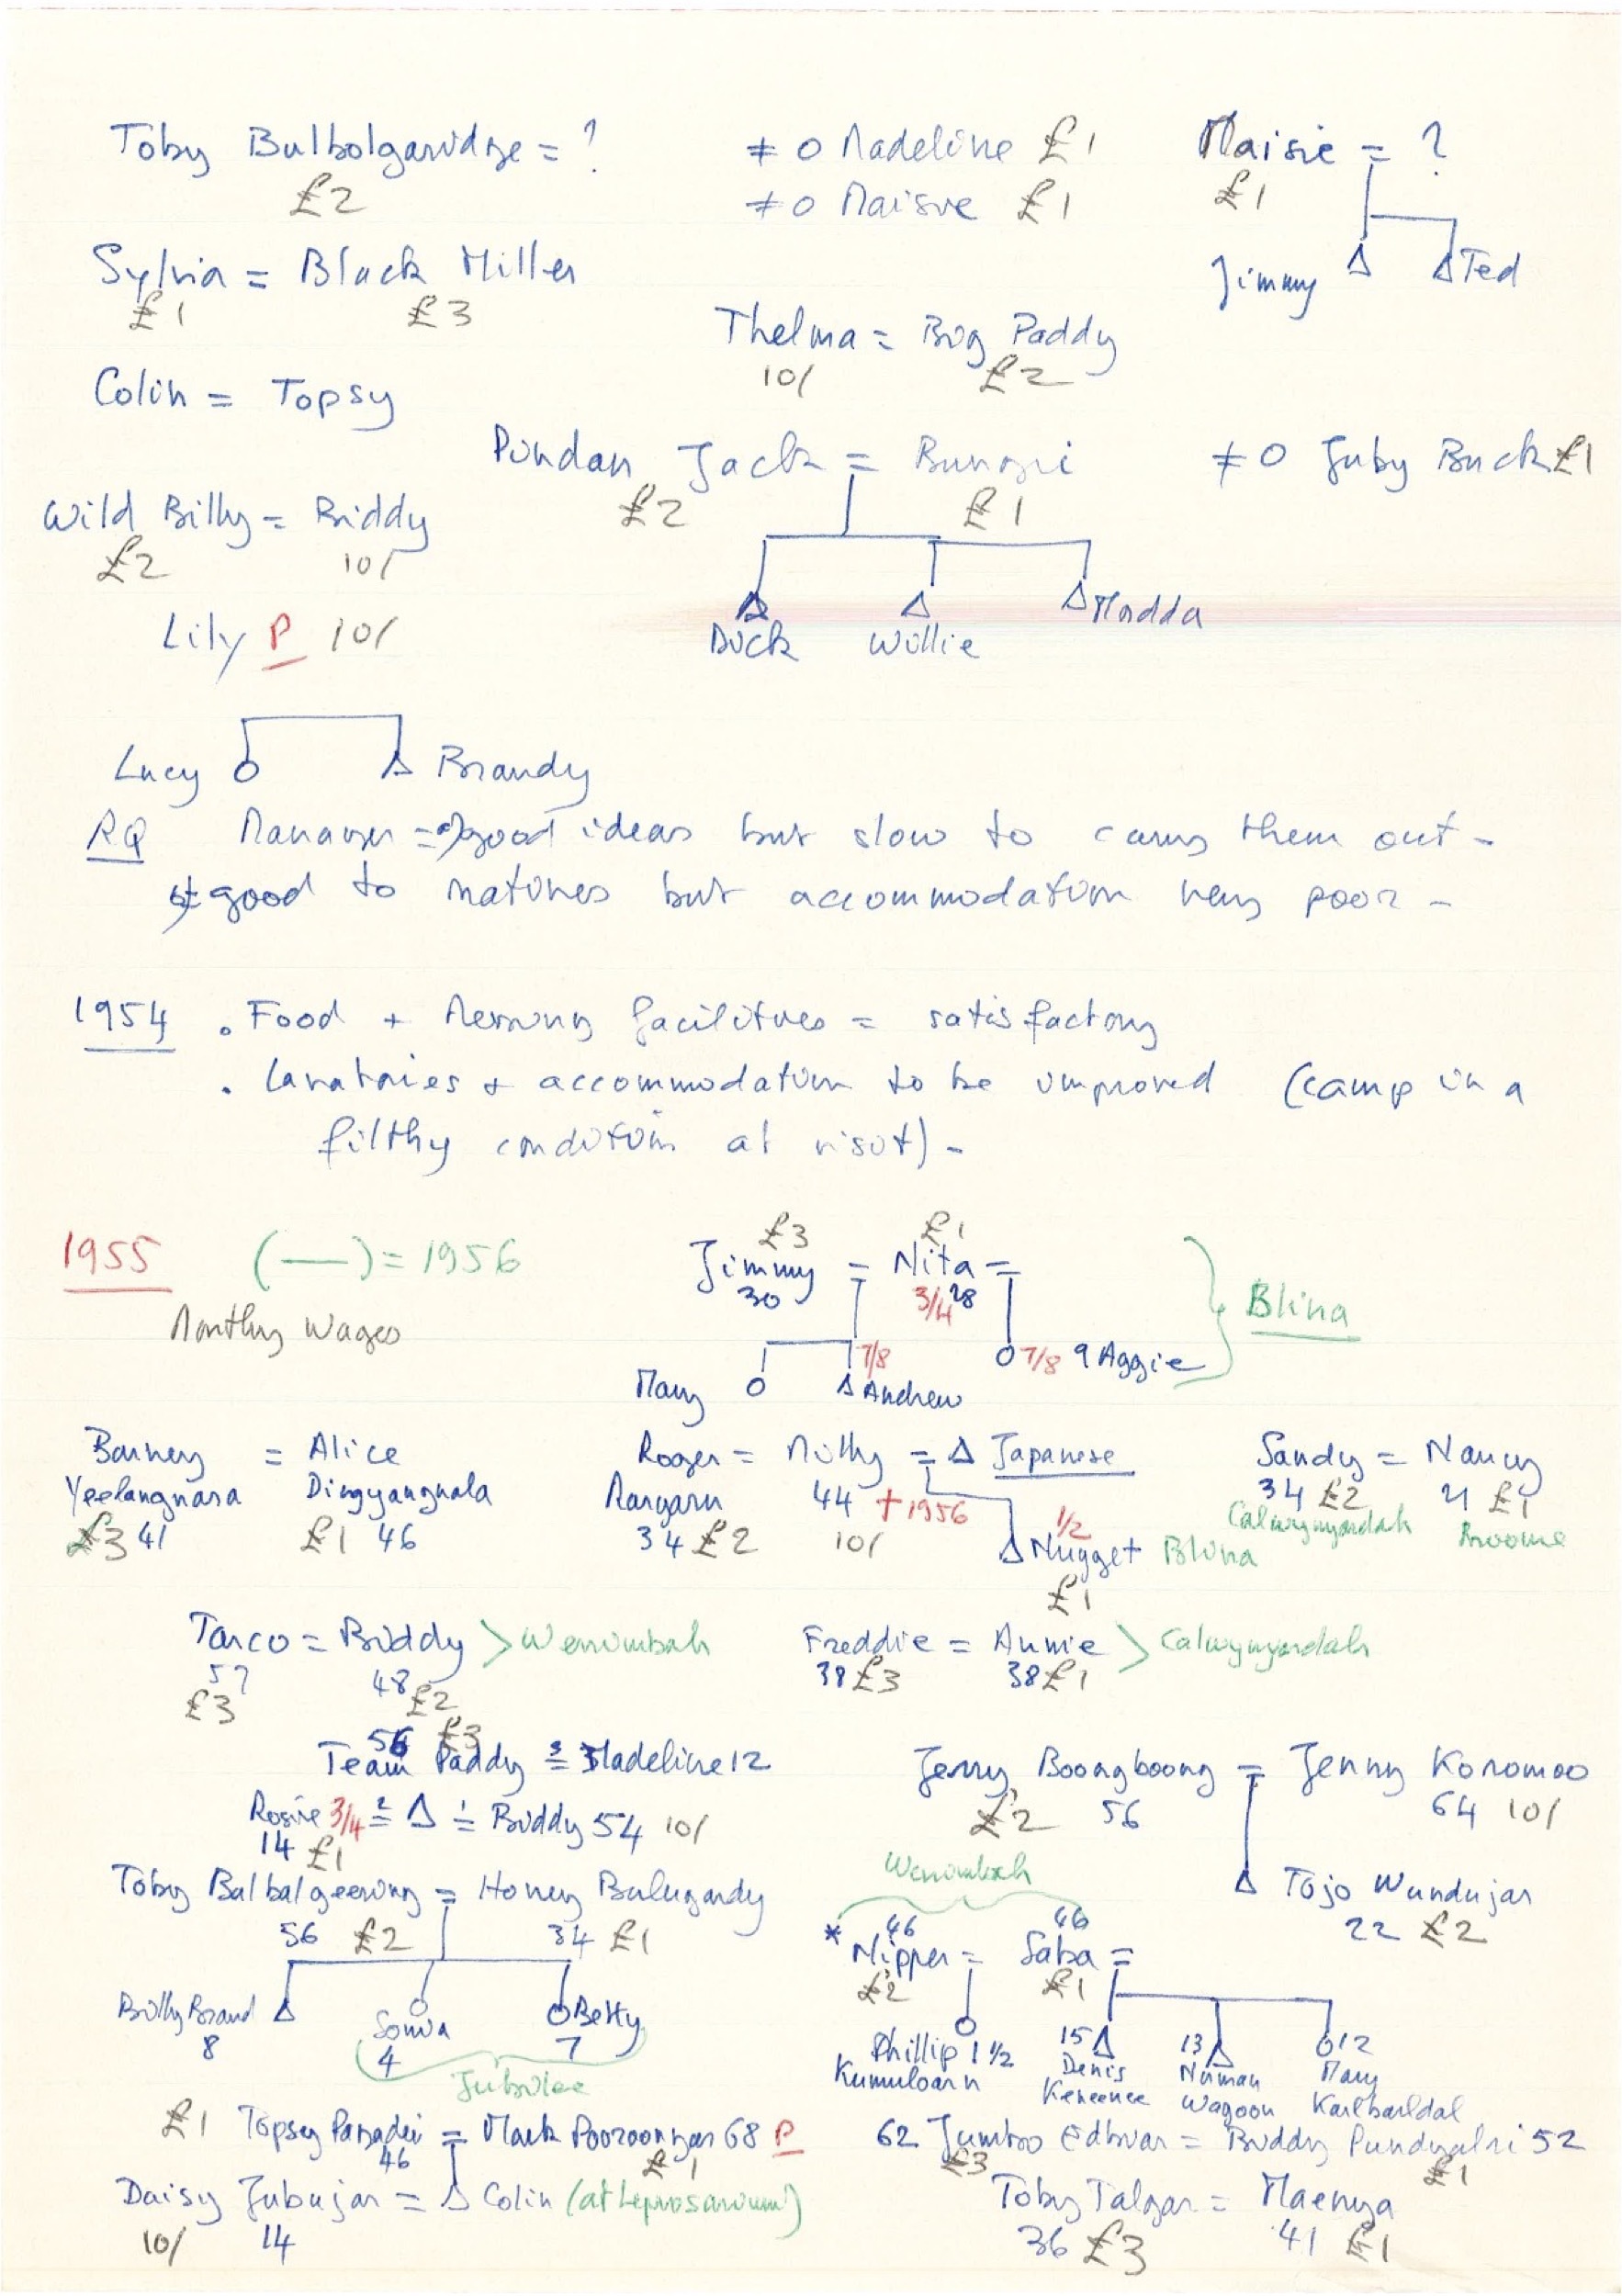 Toby Bulbolgaridge = ? ≠ O Madeline £1 Maisie = ?
£2 ≠ O Maisie £1 £1
Sylvia = Black Miller Jimmy Δ Δ Ted
£1 £3
Thelma = Big Paddy
10/ £2
Colin = Topsy
Pindan Jack = Bungi ≠ O Juby Buck £1
£2 £1
Wild Billy = Biddy
£2 10/
Lily P 10/
Δ Δ Δ Modda
Dick Willie
Lucy O Δ Brandy
RQ Manager = good ideas but slow to carry them out -
good to natives but accommodation very poor -
1954 . Food + Messing facilities = satisfactory
. Lavatories + accommodation to be improved (camp in a
filthy condition at visit) -
1955 (—) = 1956
Monthly Wages
£3 £1
Jimmy = Nita =
30 3/4 28
Blina
7/8 O 7/8 9 Aggie
Mary O Δ Andrew
Barney = Alice
Yeelangnara Dingyangnala
£3 41 £1 46
Roger = Milly = Δ Japanese
44 + 1956
34 £2 10/
1/2
Δ Nugget Blina
£1
Sandy = Nancy
34 £2 21 £1
Calwynyardah Broome
Tarco = Biddy > Wenimbah
57 48
£3 £2
Freddie = Annie > Calwynyardah
38 £3 38 £1
56 £3
Team Paddy = 3 Madeline 12
Rosie 3/4 = 2 Δ = 1 Biddy 54 10/
14 £1
Jerry Boongboong = Jenny Koromoo
£2 56 64 10/
Δ Tojo Wundujar
22 £2
Toby Balbalgeering = Honey Bulugardy
56 £2 34 £1
Billy Brand Δ O O Betty
8 Sonia 7
4
Jubilee
Wenimbah
* 46 46
Nipper = Saba =
£2 £1
O 15 Δ 13 Δ O 12
Phillip 1 1/2 Denis Numan Mary
Kumuloarn Keneenee Wagoon Karlbarldal
£1 Topsy Panadei = Mark Poozoonyar 68 P
46 £1
Daisy Jubujar = Δ Colin (at Leprosarium)
10/ 14
62 Jumbo Edbvar = Biddy Pundyalri 52
£3 £1
Toby Talgar = Maenya
36 £3 41 £1